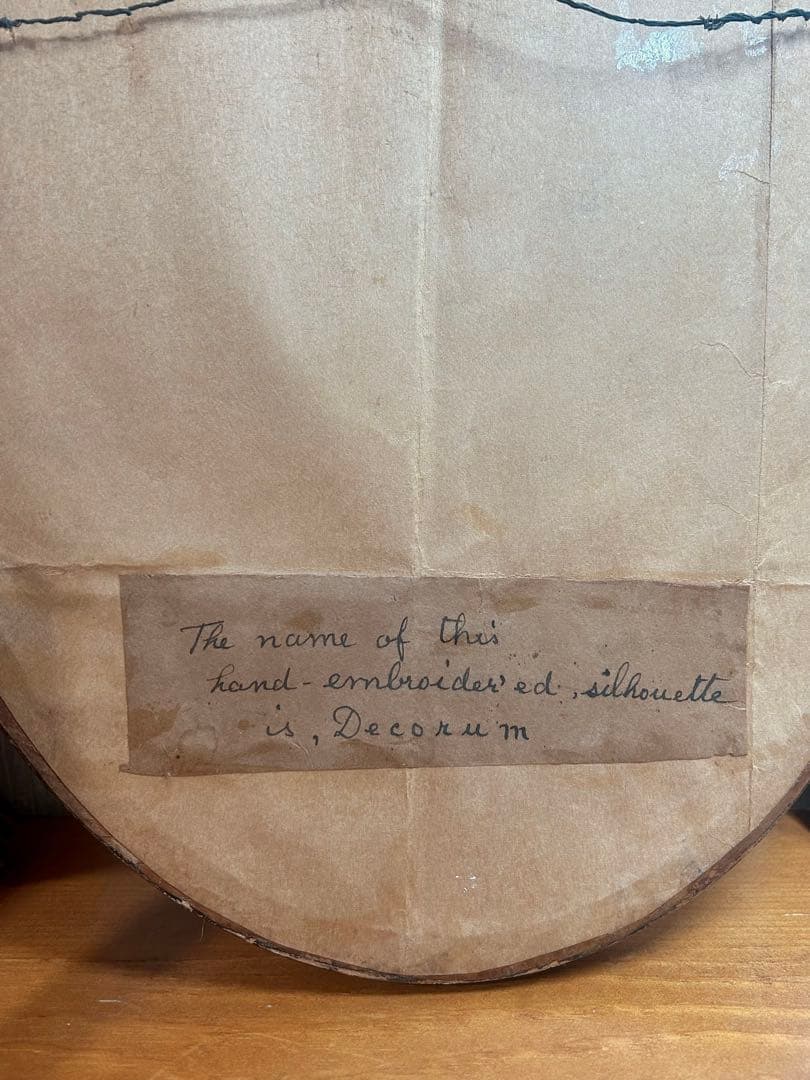 The name of this
hand-embroider'ed, silhouette
is, Decorum